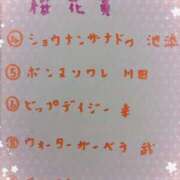 桜花賞
④ ショウナンサナドウ 池添
⑤ ボンヌソワレ 川田
⑥ ビップデイジー 幸
⑱ ウォーターガーベラ 武